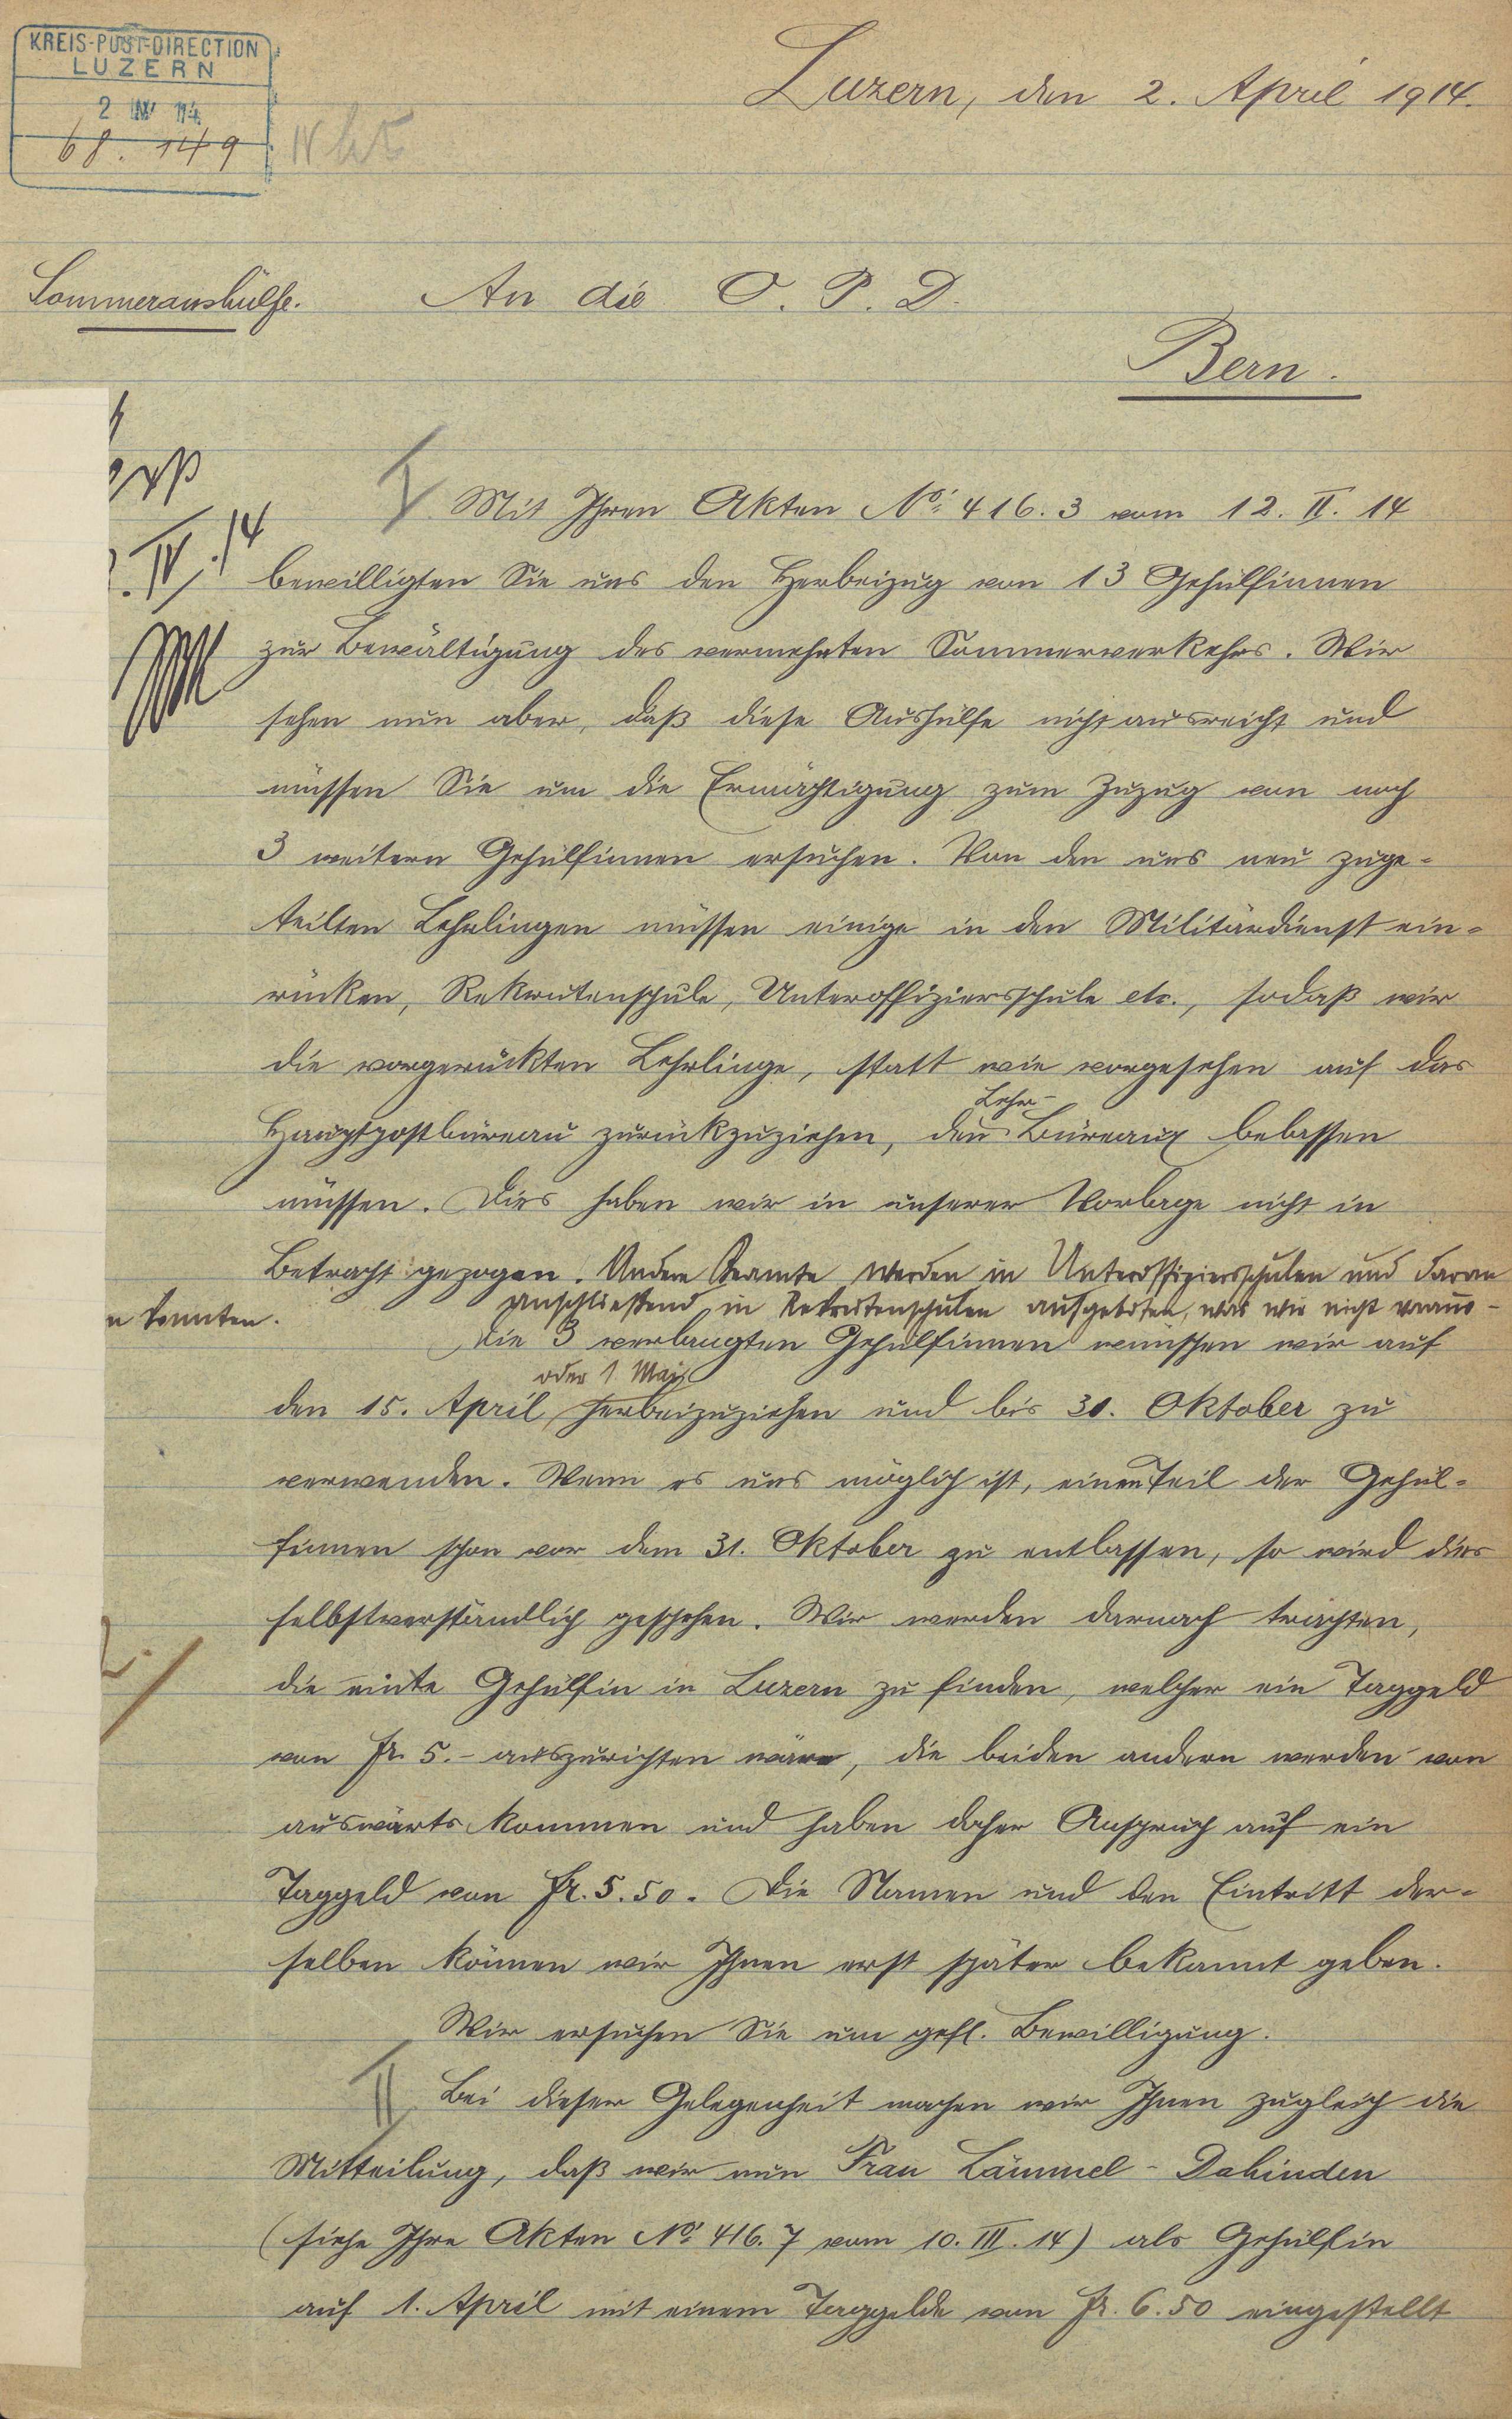 KREIS-POST-DIRECTION
LUZERN
2 IV 14
68. 149
Luzern, den 2. April 1914.
Sommeraushülfe.
An die O. P. D.
Bern.
IV. 14
I
Mit Ihren Akten No. 416. 3 vom 12. II. 14
bewilligten Sie uns den Herbeizug von 13 Gehülfinnen
zur Bewältigung des vermehrten Sommerverkehrs. Wir
sehen nun aber, daß diese Aushülfe nicht ausreicht und
müssen Sie um die Ermächtigung zum Zuzug von noch
3 weitern Gehülfinnen ersuchen. Von den uns neu zuge-
teilten Lehrlingen müssen einige in den Militärdienst ein-
rücken, Rekrutenschule, Unteroffiziersschule etc., sodaß wir
die vorgerückten Lehrlinge, statt wie vorgesehen auf das
Lehr-
Hauptpostbüreau zurückzuziehen, den Büreaux belassen
müssen. Dies haben wir in unserer Vorlage nicht in
Betracht gezogen. Andere Beamte werden in Unteroffiziersschulen und daran
anschließend in Rekrutenschulen aufgeboten, was wir nicht voraus-
n konnten.
Die 3 verlangten Gehülfinnen wünschen wir auf
oder 1. Mai
den 15. April herbeizuziehen und bis 31. Oktober zu
verwenden. Wenn es uns möglich ist, einen Teil der Gehül-
finnen schon vor dem 31. Oktober zu entlassen, so wird dies
selbstverständlich geschehen. Wir werden darnach trachten,
die einte Gehülfin in Luzern zu finden, welcher ein Taggeld
von Fr. 5.- auszurichten wäre, die beiden andern werden von
auswärts kommen und haben daher Anspruch auf ein
Taggeld von Fr. 5.50. Die Namen und den Eintritt der-
selben können wir Ihnen erst später bekannt geben.
Wir ersuchen Sie um gefl. Bewilligung.
II
Bei dieser Gelegenheit machen wir Ihnen zugleich die
Mitteilung, daß wir nun Frau Lämmel-Dahinden
(siehe Ihre Akten No. 416. 7 vom 10. III. 14) als Gehülfin
auf 1. April mit einem Taggelde von Fr. 6.50 eingestellt